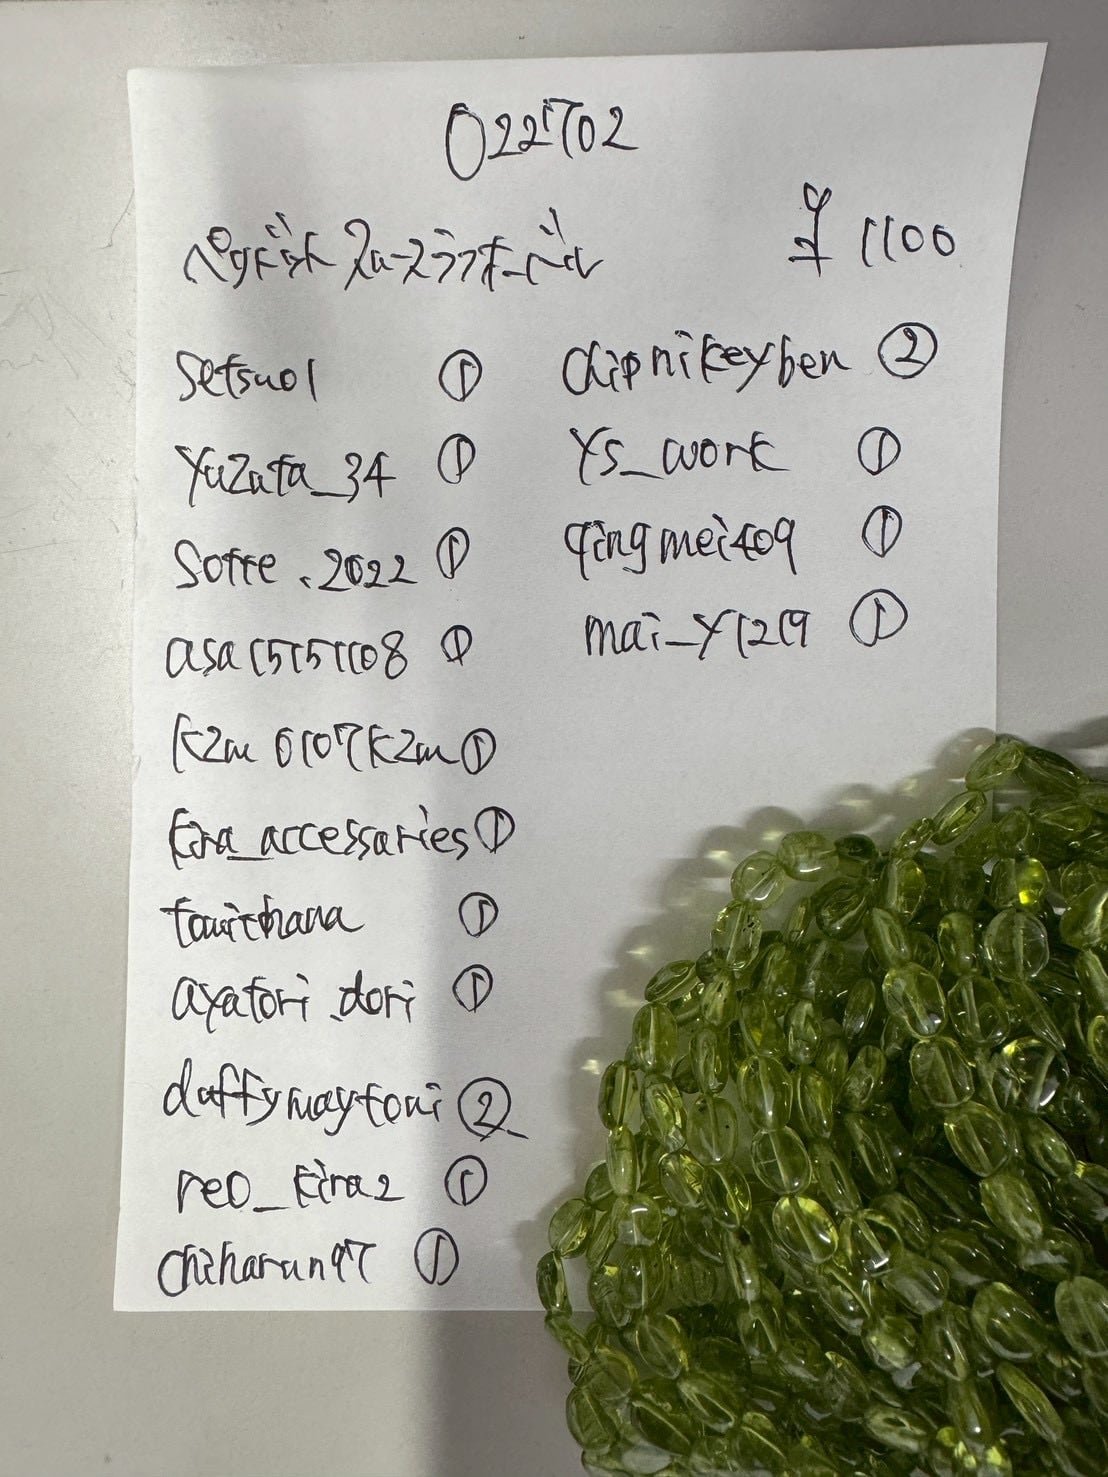 0221T02
ペリドット スムースラフオーバル ¥1100
setsuo1 ①
yuzuta_34 ①
sorre.2022 ①
asa15151108 ①
kzm0107kzm ①
kira_accessaries ①
ayatori.dori ①
daffymaytomi ②
reo_kira2 ①
chiharun97 ①
chipnikeyben ②
ys_work ①
qingmei409 ①
mai_y1219 ①